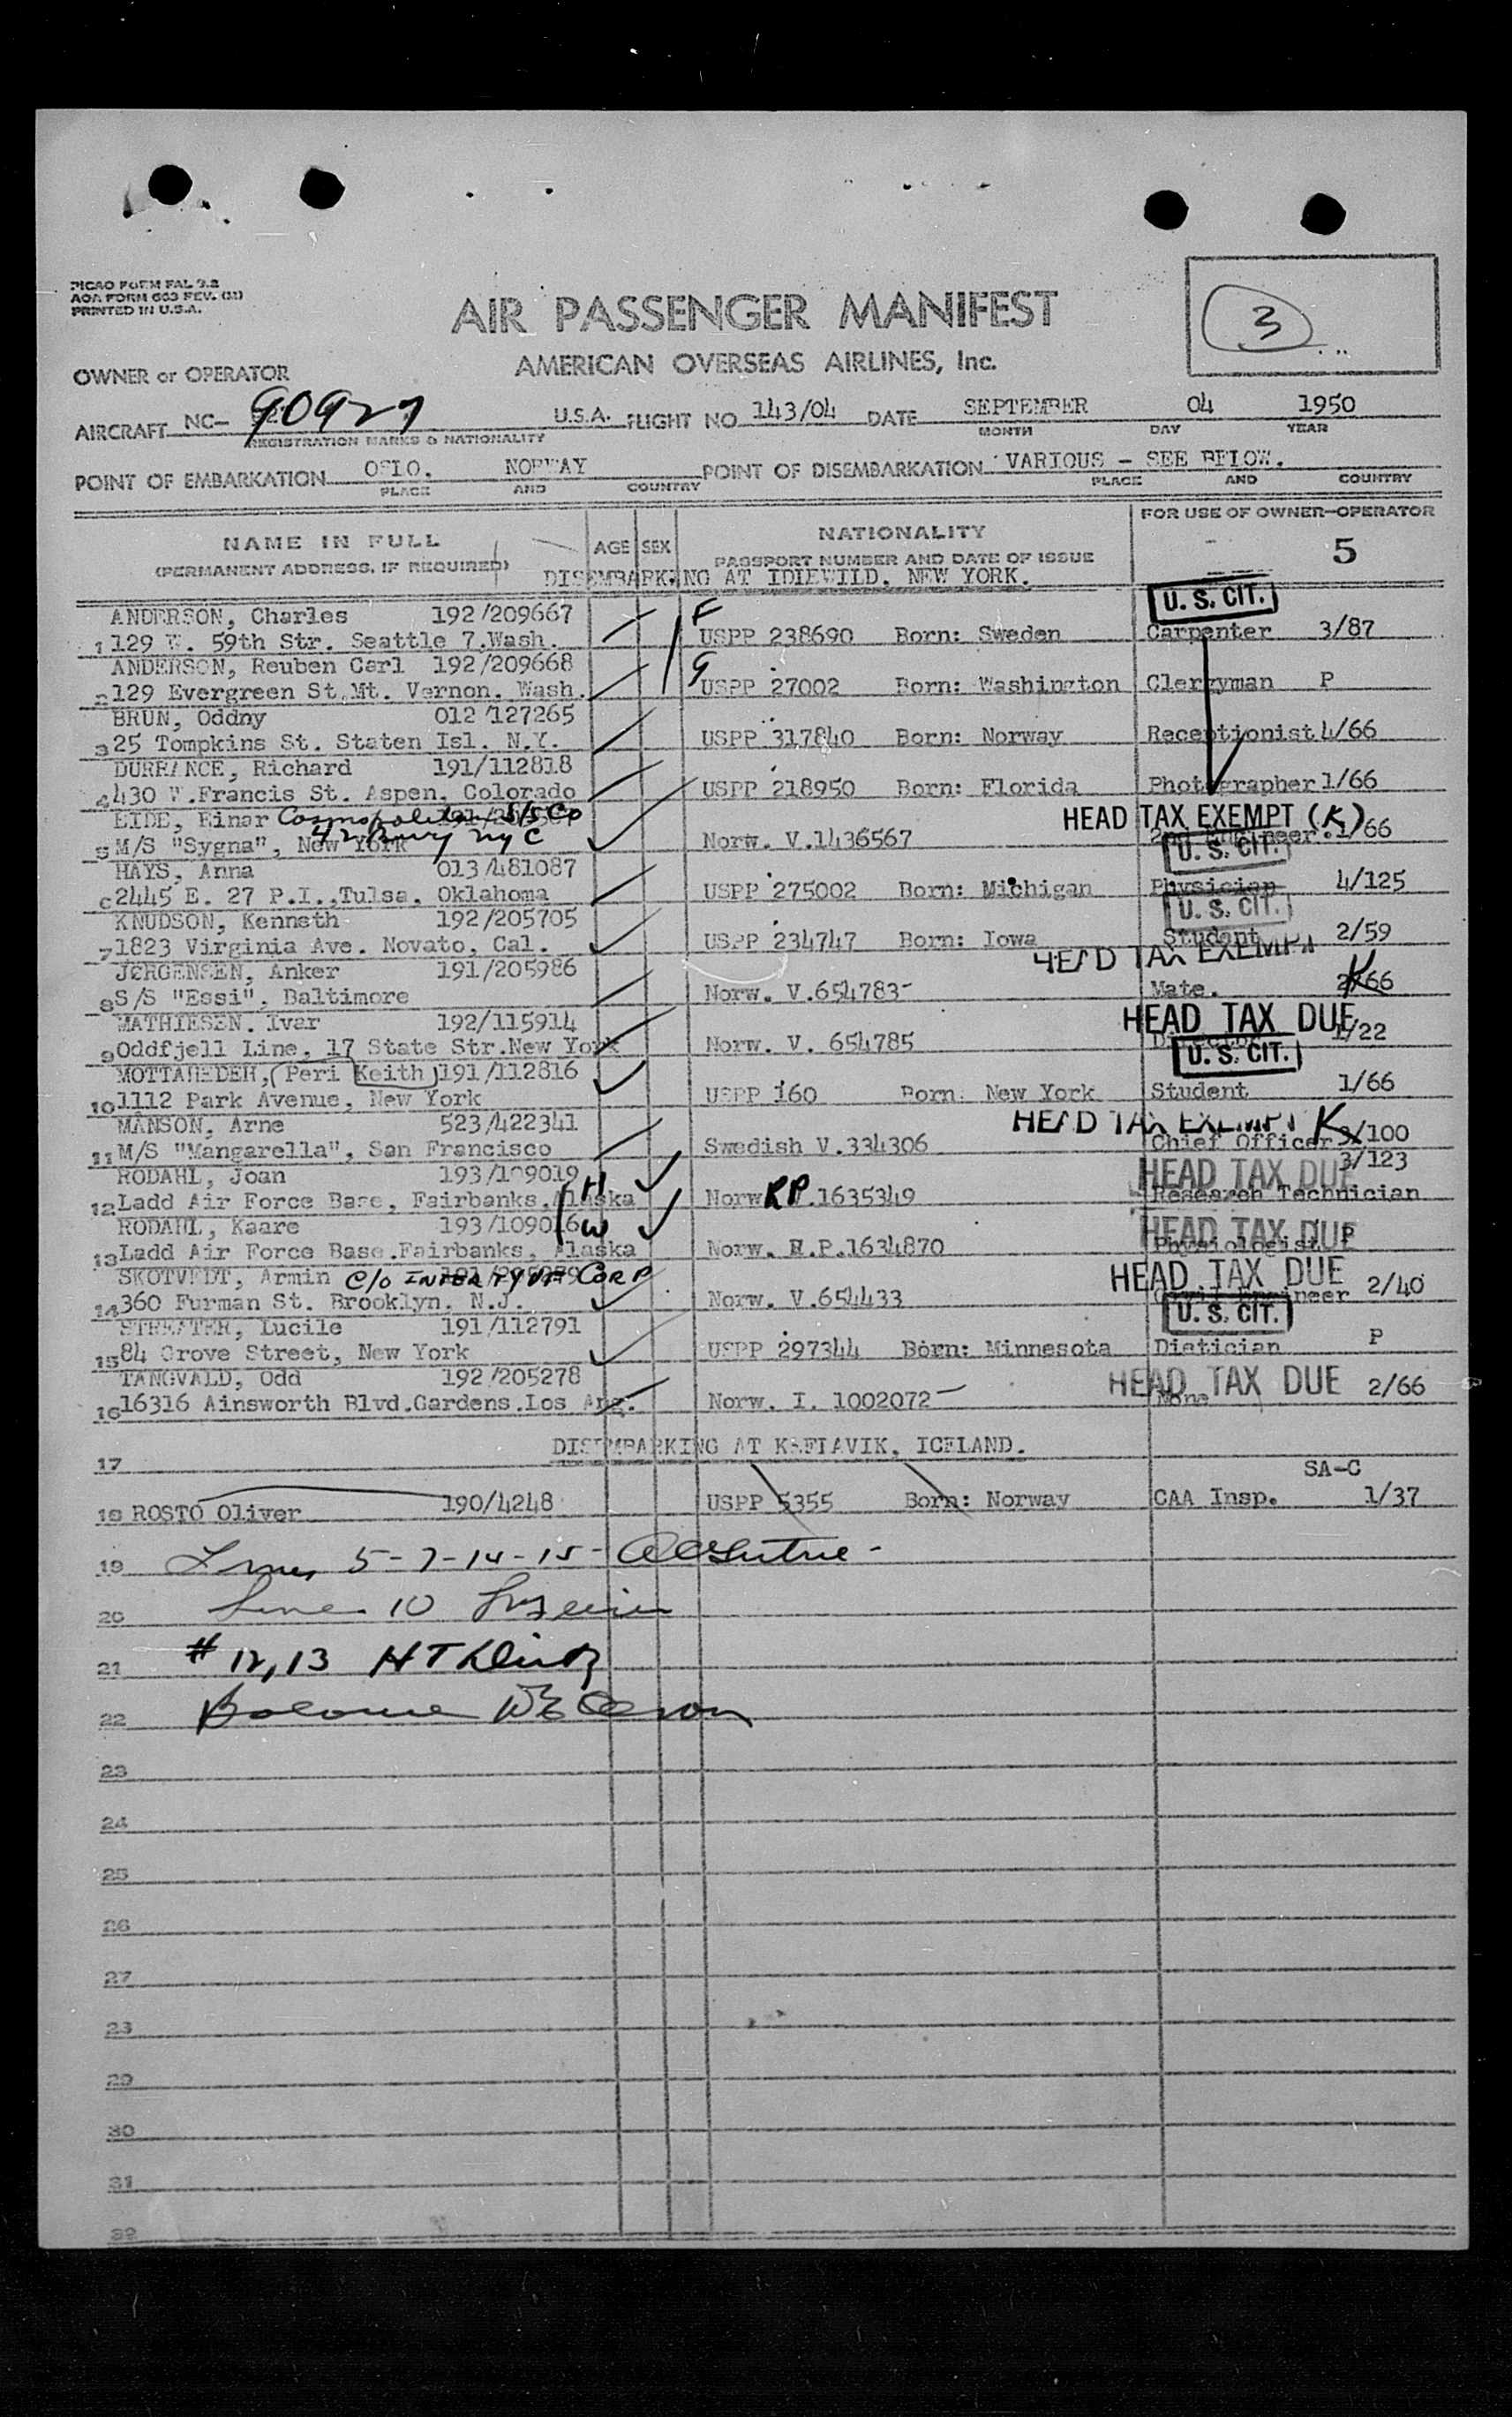 PICAO FORM FAL 9.2
AOA FORM 663 REV. (M)
PRINTED IN U.S.A.
AIR PASSENGER MANIFEST
3
AMERICAN OVERSEAS AIRLINES, Inc.
OWNER or OPERATOR
AIRCRAFT NC- 90927 U.S.A. FLIGHT NO 143/04 DATE SEPTEMBER 04 1950
REGISTRATION MARKS & NATIONALITY MONTH DAY YEAR
POINT OF EMBARKATION OSLO. NORWAY POINT OF DISEMBARKATION VARIOUS - SEE BELOW.
PLACE AND COUNTRY PLACE AND COUNTRY
NAME IN FULL AGE SEX NATIONALITY FOR USE OF OWNER-OPERATOR
(PERMANENT ADDRESS, IF REQUIRED) PASSPORT NUMBER AND DATE OF ISSUE 5
DISEMBARKING AT IDLEWILD, NEW YORK.
ANDERSON, Charles 192/209667 F U. S. CIT.
1 129 W. 59th Str. Seattle 7.Wash. USPP 238690 Born: Sweden Carpenter 3/87
ANDERSON, Reuben Carl 192/209668 G
2 129 Evergreen St.Mt. Vernon. Wash. USPP 27002 Born: Washington Clergyman P
BRUN, Oddny 012/127265
3 25 Tompkins St. Staten Isl. N.Y. USPP 317840 Born: Norway Receptionist 4/66
DURRANCE, Richard 191/112818
4 430 W.Francis St. Aspen, Colorado USPP 218950 Born: Florida Photographer 1/66
EIDE, Einar Cosmopolitan S/S Co HEAD TAX EXEMPT (K)
5 M/S "Sygna", New York NYC Norw. V.1436567 2nd Engineer. 1/66
HAYS, Anna 013/481087 U. S. CIT.
6 2445 E. 27 P.I.,Tulsa, Oklahoma USPP 275002 Born: Michigan Physician 4/125
KNUDSON, Kenneth 192/205705 U. S. CIT.
7 1823 Virginia Ave. Novato, Cal. USPP 234747 Born: Iowa Student 2/59
JERGENSEN, Anker 191/205986 HEAD TAX EXEMPT K
8 S/S "Essi", Baltimore Norw. V.654783- Mate. 2/66
MATHIESEN. Ivar 192/115914 HEAD TAX DUE
9 Oddfjell Line, 17 State Str.New York Norw. V. 654785 1/22
MOTTAHEDEH, (Peri Keith) 191/112816 U. S. CIT.
10 1112 Park Avenue, New York USPP 160 Born: New York Student 1/66
MANSON, Arne 523/422341 HEAD TAX EXEMPT K
11 M/S "Mangarella", San Francisco Swedish V.334306 Chief Officer 3/100
RODAHL, Joan 193/109019 H HEAD TAX DUE 3/123
12 Ladd Air Force Base, Fairbanks, Alaska Norw RP.1635349 Research Technician
RODAHL, Kaare 193/109016 W HEAD TAX DUE P
13 Ladd Air Force Base.Fairbanks, Alaska Norw. R.P.1634870 Physiologist
SKOTVEDT, Armin C/O INTERTYPE CORP HEAD TAX DUE
14 360 Furman St. Brooklyn. N.J. Norw. V.654433 Civil Engineer 2/40
STREATER, Lucile 191/112791 U. S. CIT.
15 84 Grove Street, New York USPP 297344 Born: Minnesota Dietician P
TANGVALD, Odd 192/205278 HEAD TAX DUE
16 16316 Ainsworth Blvd.Gardens.Los Ang. Norw. I. 1002072- None 2/66
DISEMBARKING AT KEFLAVIK, ICELAND.
17 SA-C
18 ROSTO Oliver 190/4248 USPP 5355 Born: Norway CAA Insp. 1/37
19 5-7-14-15-
20 Line 10
21 # 12,13
22
23
24
25
26
27
28
29
30
31
32